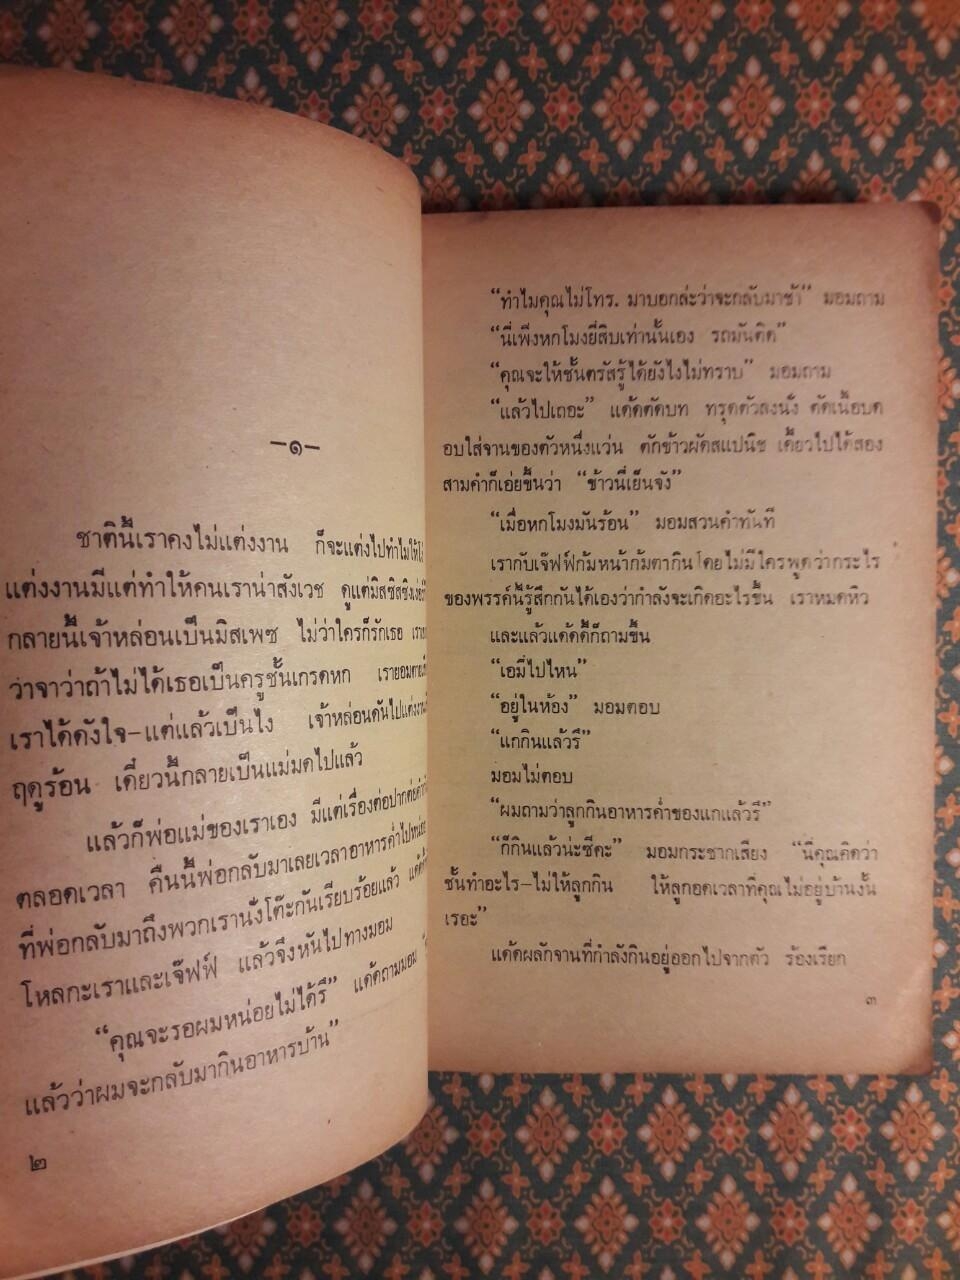 –๑–
ชาตินี้เราคงไม่แต่งงาน ก็จะแต่งไปทำไมให้โง่
แต่งงานมีแต่ทำให้คนเราน่าสังเวช ดูแต่มิสซิส
กลายนี้เจ้าหล่อนเป็นมิสเพซ ไม่ว่าใครก็รักเธอ
ว่าจาว่าถ้าไม่ได้เธอเป็นครูชั้นเกรดหก เรายอมตาย
เราได้ดังใจ–แต่แล้วเป็นไง เจ้าหล่อนดันไปแต่งงาน
ฤดูร้อน เดี๋ยวนี้กลายเป็นแม่มดไปแล้ว
แล้วก็พ่อแม่ของเราเอง มีแต่เรื่องต่อปากต่อคำ
ตลอดเวลา คืนนี้พ่อกลับมาเลยเวลาอาหารค่ำไป
ที่พ่อกลับมาถึงพวกเรานั่งโต๊ะกันเรียบร้อยแล้ว
โหลกะเราและเจ๊ฟฟ์ แล้วจึงหันไปทางมอม
“คุณจะรอผมหน่อยไม่ได้รึ” แด้ดถามมอม
แล้วว่าผมจะกลับมากินอาหารบ้าน”
๒
“ทำไมคุณไม่โทร. มาบอกล่ะว่าจะกลับมาช้า” มอมถาม
“นี่เพิ่งหกโมงยี่สิบเท่านั้นเอง รถมันติด”
“คุณจะให้ชั้นตรัสรู้ได้ยังไงไม่ทราบ” มอมถาม
“แล้วไปเถอะ” แด้ดตัดบท ทรุดตัวลงนั่ง ตัดเนื้อบด
อบใส่จานของตัวหนึ่งแว่น ตักข้าวผัดสแปนิช เคี้ยวไปได้สอง
สามคำก็เอ่ยขึ้นว่า “ข้าวนี่เย็นจัง”
“เมื่อหกโมงมันร้อน” มอมสวนคำทันที
เรากับเจ๊ฟฟ์ก้มหน้าก้มตากินโดยไม่มีใครพูดว่ากระไร
ของพรรค์นี้รู้สึกกันได้เองว่ากำลังจะเกิดอะไรขึ้น เราหมดหิว
และแล้วแด้ดดี้ก็ถามขึ้น
“เอมี่ไปไหน”
“อยู่ในห้อง” มอมตอบ
“แกกินแล้วรึ”
มอมไม่ตอบ
“ผมถามว่าลูกกินอาหารค่ำของแกแล้วรึ”
“ก็กินแล้วน่ะซีคะ” มอมกระชากเสียง “นี่คุณคิดว่า
ชั้นทำอะไร–ไม่ให้ลูกกิน ให้ลูกอดเวลาที่คุณไม่อยู่บ้านงั้น
เรอะ”
แด้ดผลักจานที่กำลังกินอยู่ออกไปจากตัว ร้องเรียก
๓